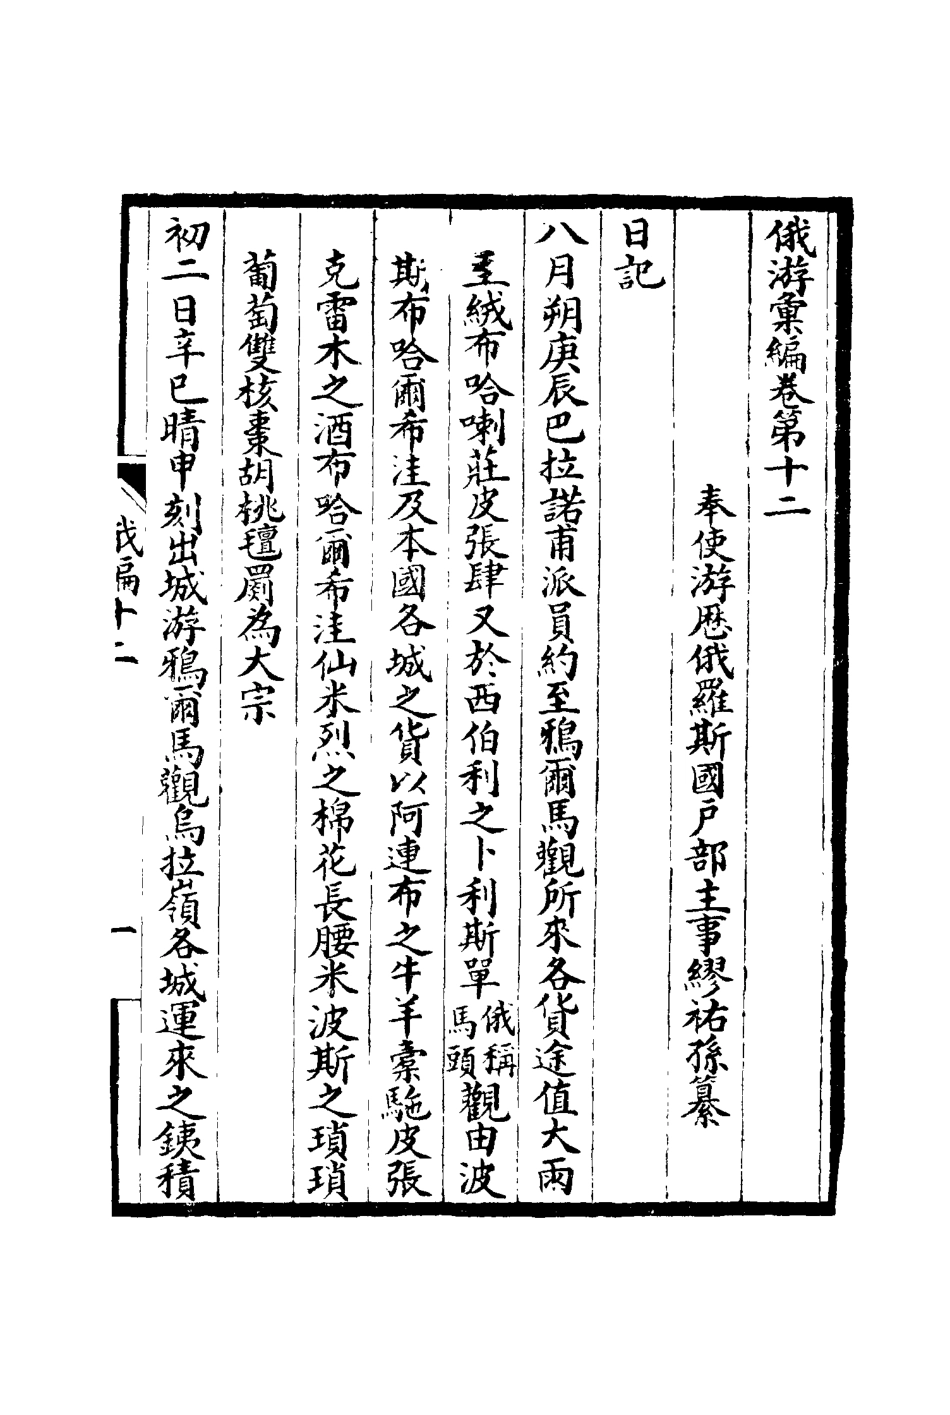 俄游彙編卷第十二
奉使游歷俄羅斯國戶部主事繆祐孫纂
日記
八月朔庚辰巴拉諾甫派員約至鴉爾馬觀所來各貨途值大雨
至絨布哈喇莊皮張肆又於西伯利之卜利斯單俄稱馬頭觀由波
斯布哈爾希洼及本國各城之貨以阿連布之牛羊橐駞皮張
克雷木之酒布哈爾希洼仙米烈之棉花長腰米波斯之瑣瑣
葡萄雙核棗胡桃氊罽為大宗
初二日辛巳晴申刻出城游鴉爾馬觀烏拉嶺各城運來之銕積
俄編十二
一